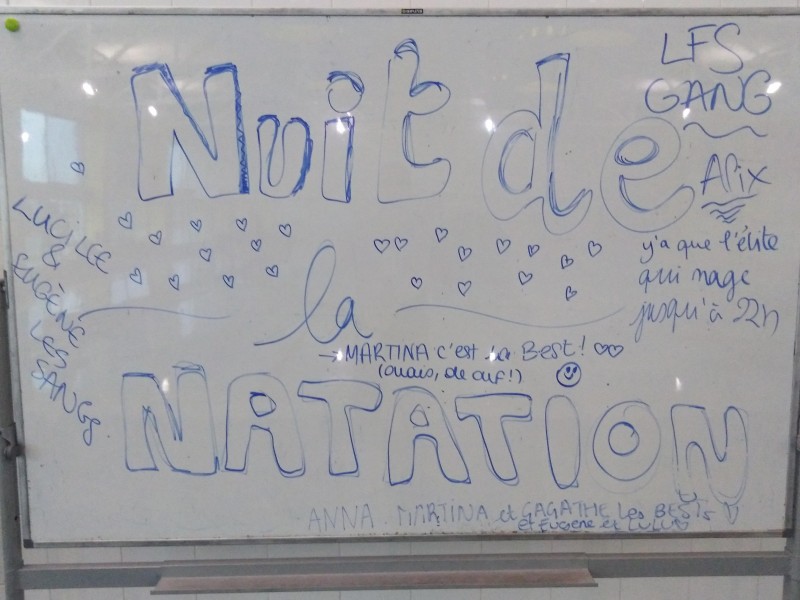 Nuit de
LES
GANG
Apix
y'a que l'élite
qui nage
jusqu'à 22h
LUCILLE
&
EUGÈNE
LES
SANGS
la
→ MARTINA c'est la BEST! ♡♡
(ouais, de ouf!)
NATATION
ANNA MARTINA et GAGATHE les BESTs
et EUGENE et LULU